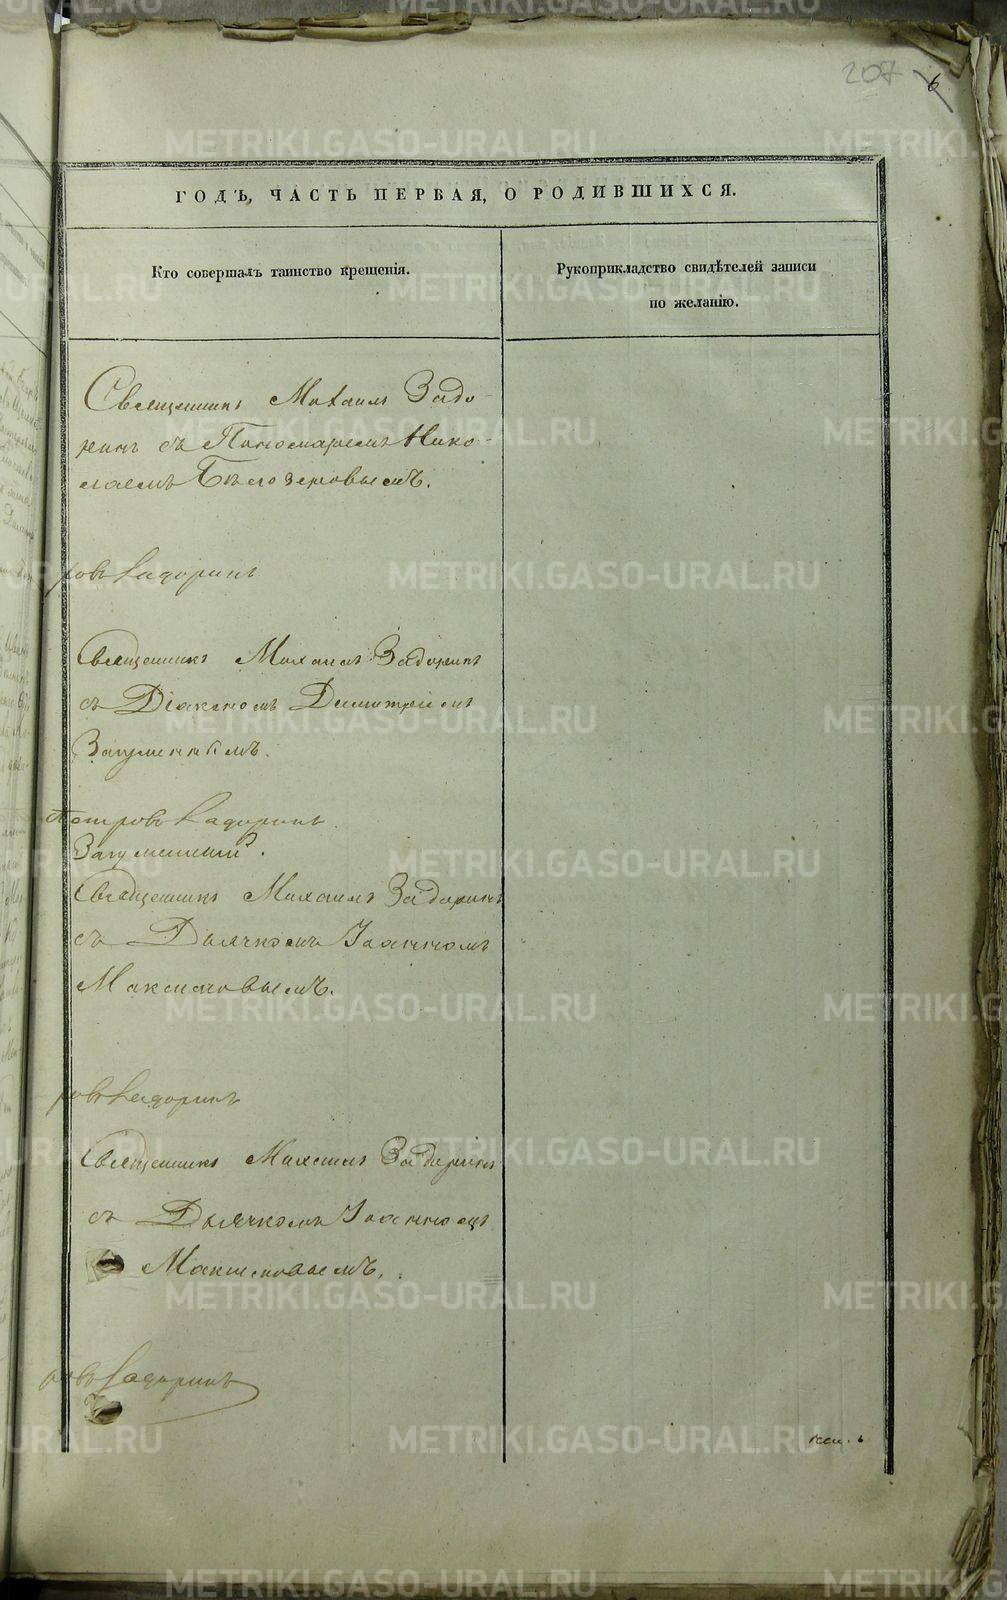 207 6
ГОДЪ, ЧАСТЬ ПЕРВАЯ, О РОДИВШИХСЯ.
Кто совершалъ таинство крещенія.
Рукоприкладство свидѣтелей записи
по желанію.
Священникъ Михаилъ Задо-
ринъ съ Пономаремъ Нико-
лаемъ Бѣлозеровымъ.
ровъ Кадоринъ
Священникъ Михаилъ Задоринъ
съ Діакономъ Димитріемъ
Загуменнымъ.
Петровъ Кадоринъ
Загуменный.
Священникъ Михаилъ Задоринъ
съ Дьячкомъ Іоанномъ
Максимовымъ.
ровъ Кадоринъ
Священникъ Михаилъ Задоринъ
съ Дьячкомъ Іоанномъ
Максимовымъ.
ровъ Кадоринъ
METRIKI.GASO-URAL.RU